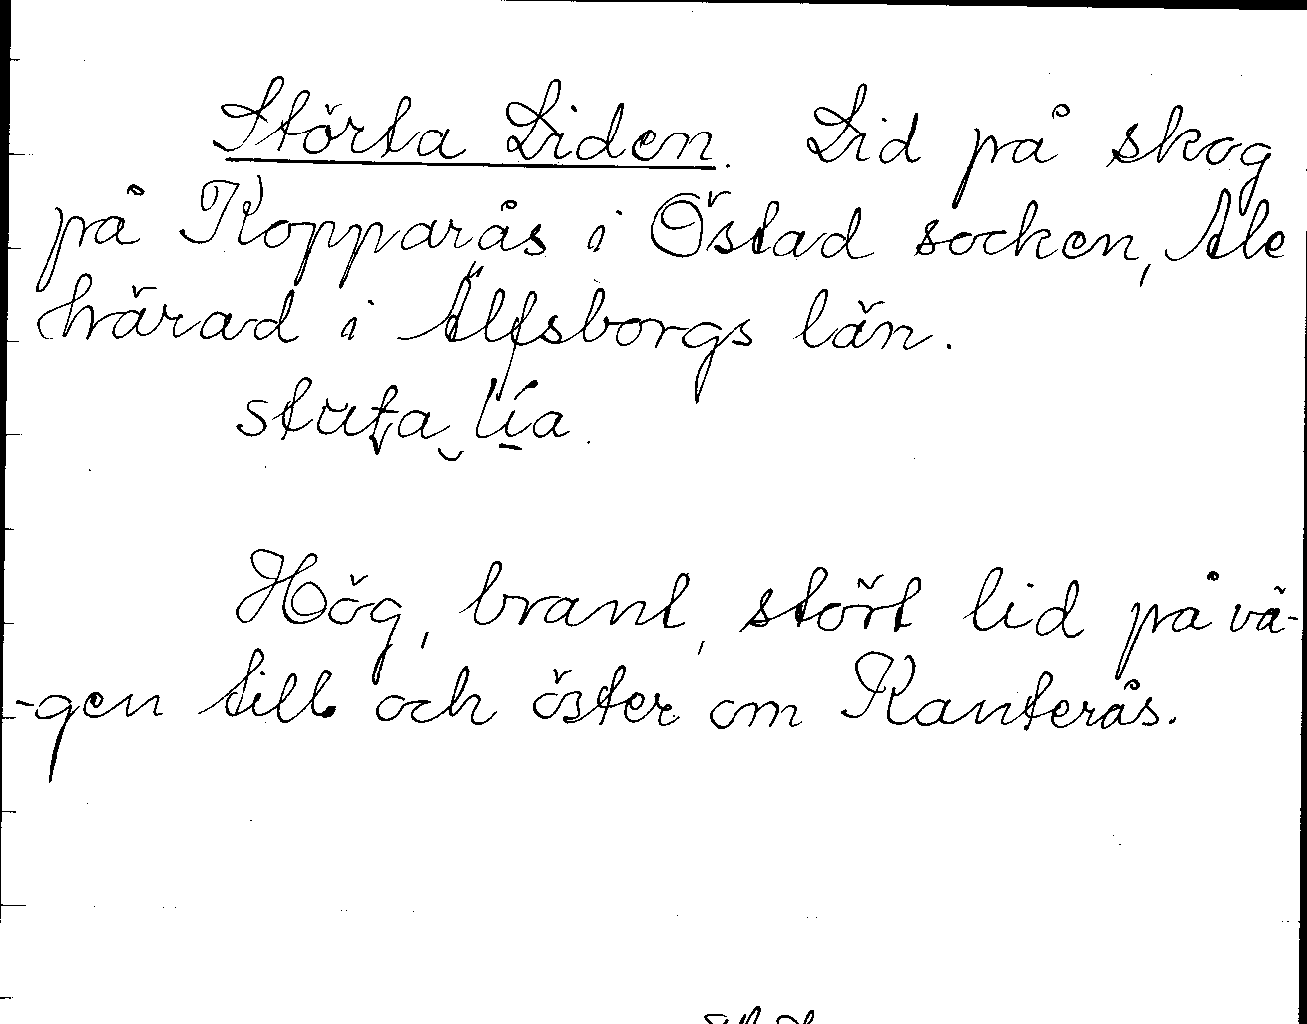 Störta Liden. Lid på skog
på Kopparås i Östad socken, Ale
härad i Älfsborgs län.
Hög, brant, stört lid på vä-
-gen till och öster om Kanterås.